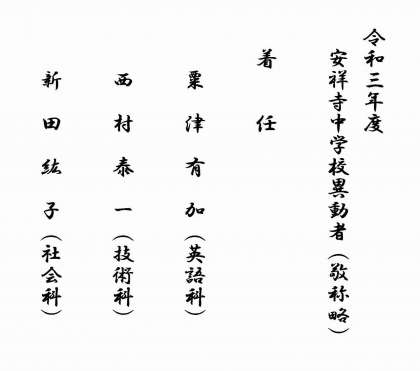 令和三年度
安祥寺中学校異動者（敬称略）
着　任
粟津有加（英語科）
西村泰一（技術科）
新田紘子（社会科）